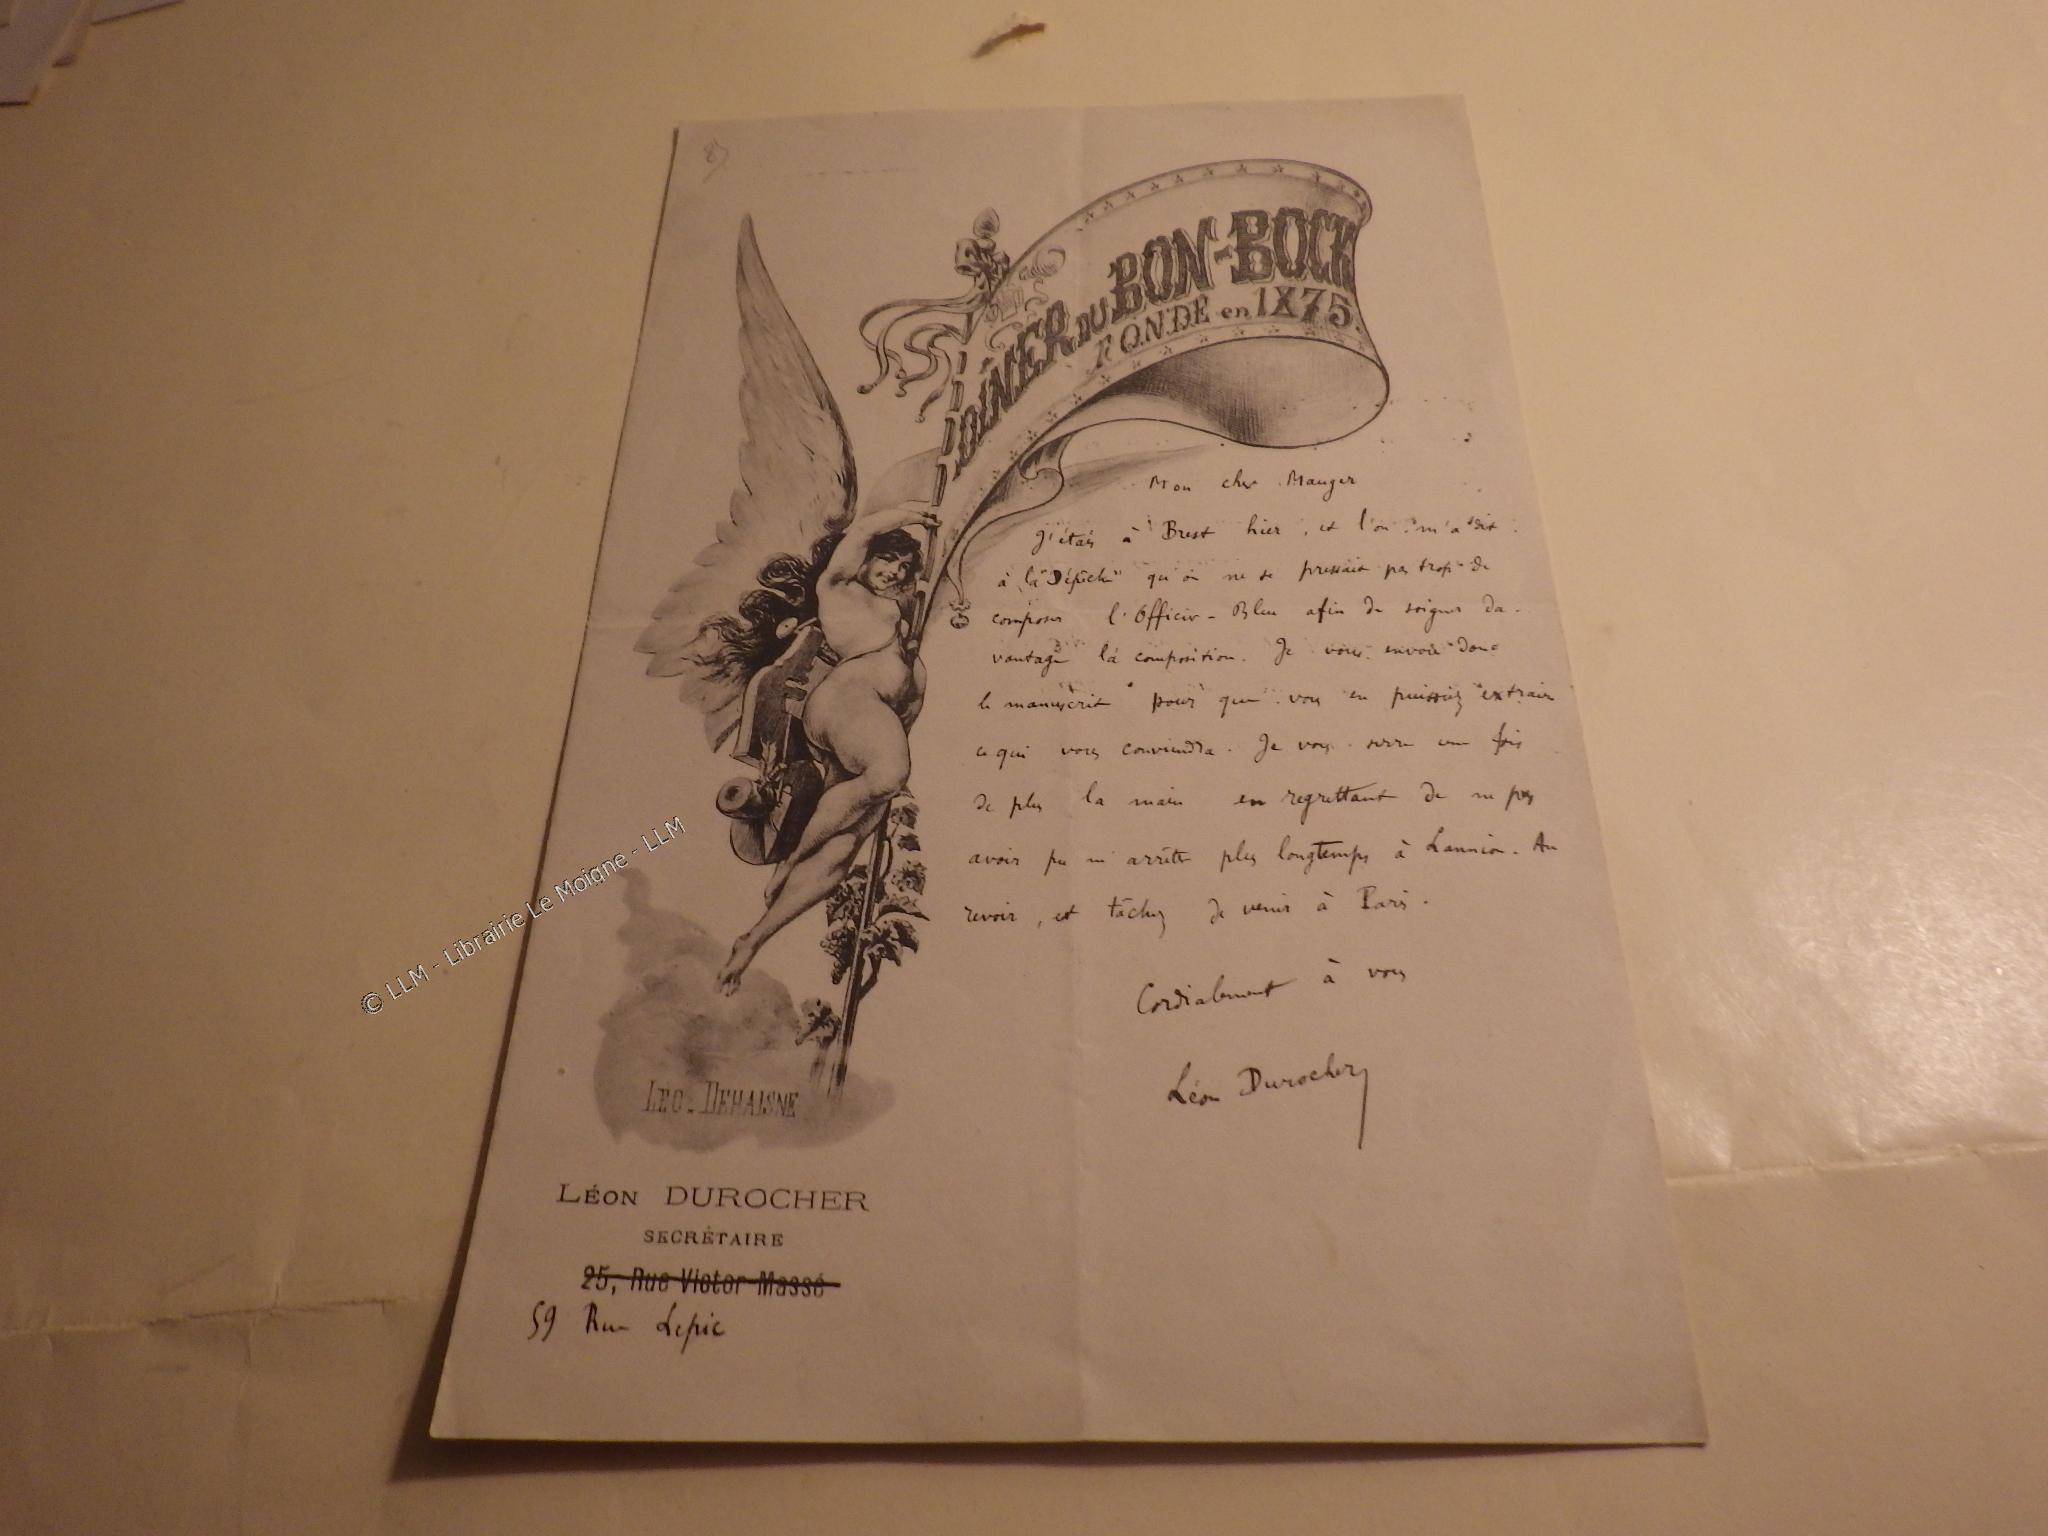 DÎNER DU BON-BOCK
FONDÉ en 1875.
Mon cher Mauger
J'étais à Brest hier, et l'on m'a dit
à la "Dépêche" qu'on ne se pressait pas trop de
composer l'Officier-Bleu afin de soigner da-
vantage la composition. Je vous envoie donc
le manuscrit pour que vous en puissiez extraire
ce qui vous conviendra. Je vous serre une fois
de plus la main en regrettant de ne pas
avoir pu m'arrêter plus longtemps à Lannion. Au
revoir, et tâchez de venir à Paris.
Cordialement à vous
Léon Durocher
LÉO. DEHAISNE
LÉON DUROCHER
SECRÉTAIRE
25, Rue Victor Massé
59 Rue Lepic
© LLM - Librairie Le Moigne - LLM